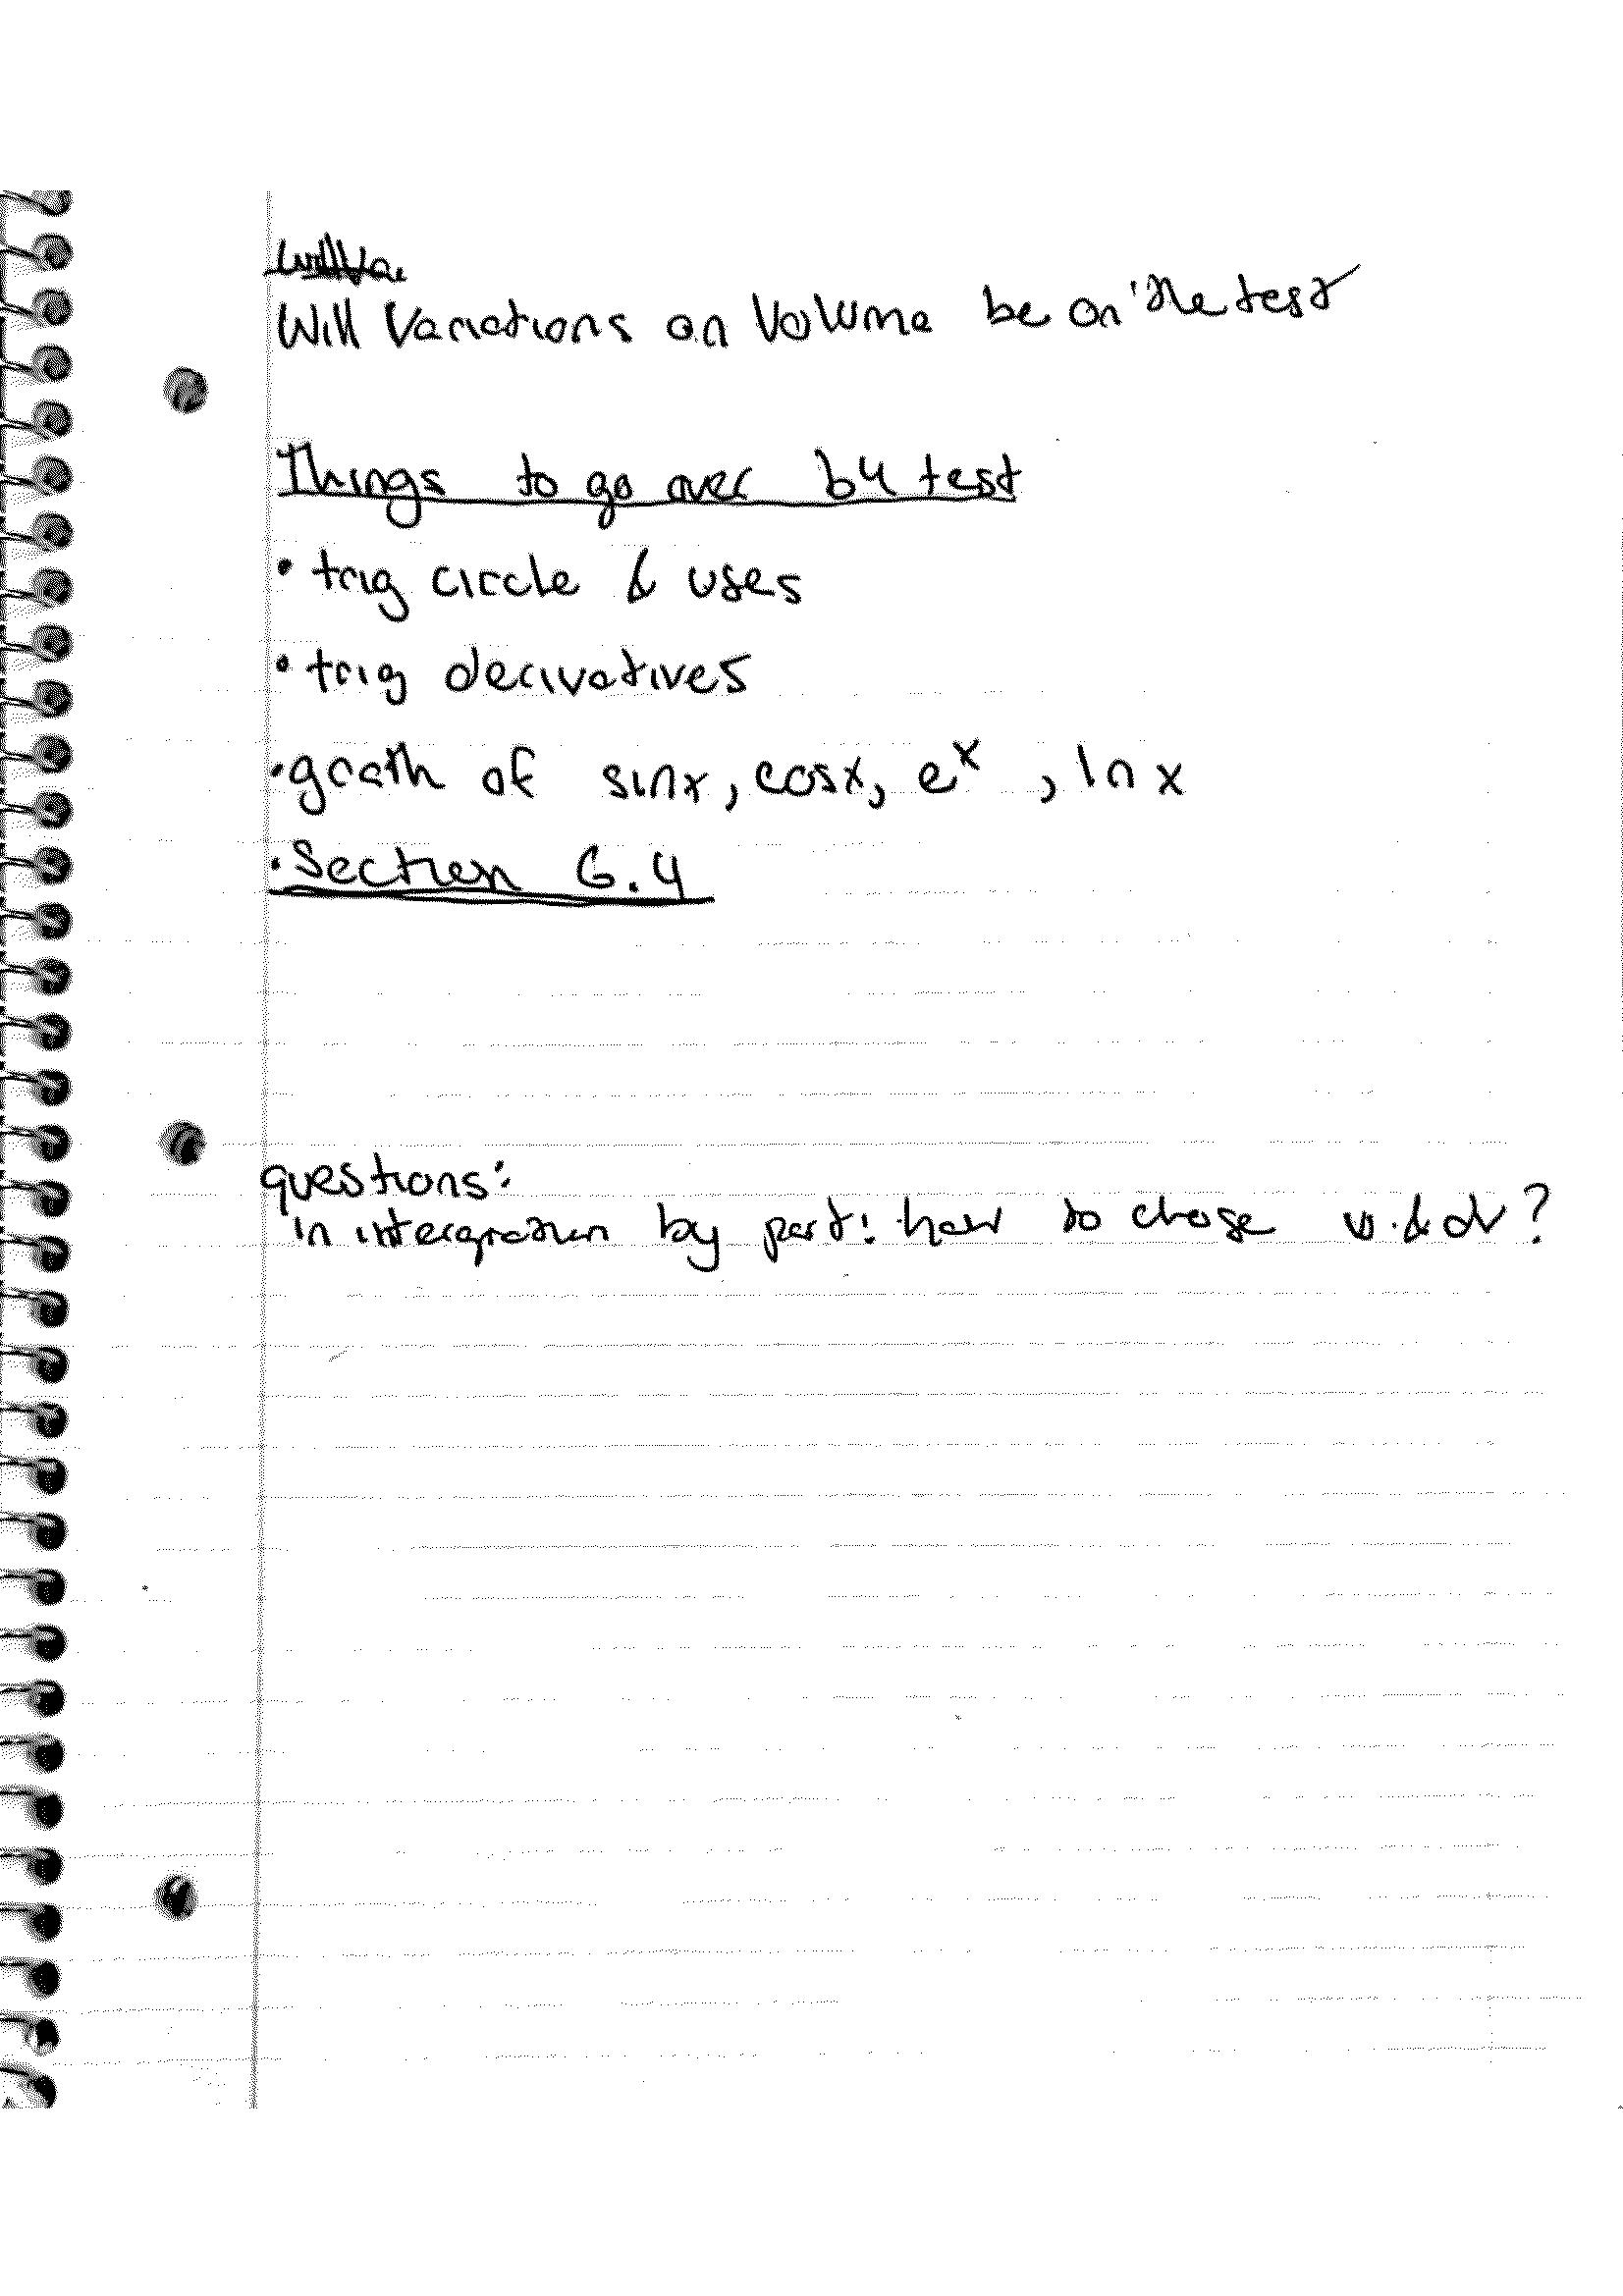 Will Variations on Volume be on the test
Things to go over b4 test
• trig circle & uses
• trig derivatives
• graph of sinx, cosx, e^x, ln x
• Section 6.4
questions:
in intergration by part: how to chose u & dv?